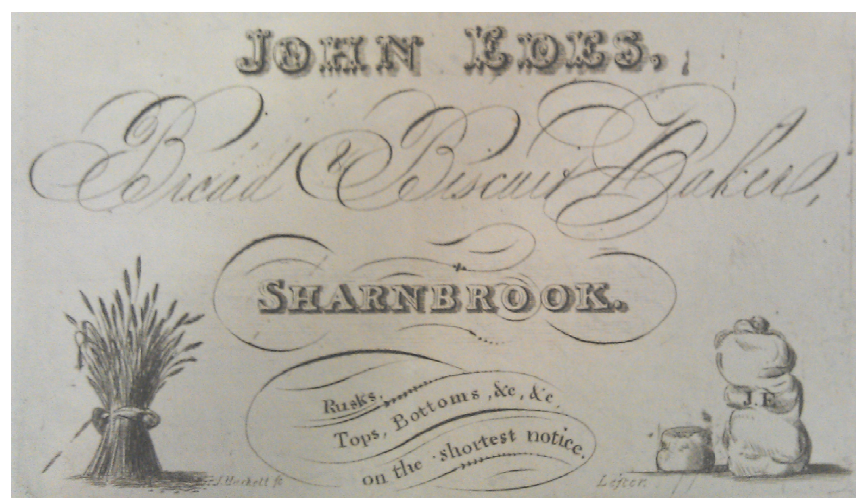 JOHN EDES.
Bread & Biscuit Baker,
SHARNBROOK.
Rusks,
Tops, Bottoms, &c, &c,
on the shortest notice.
J.E